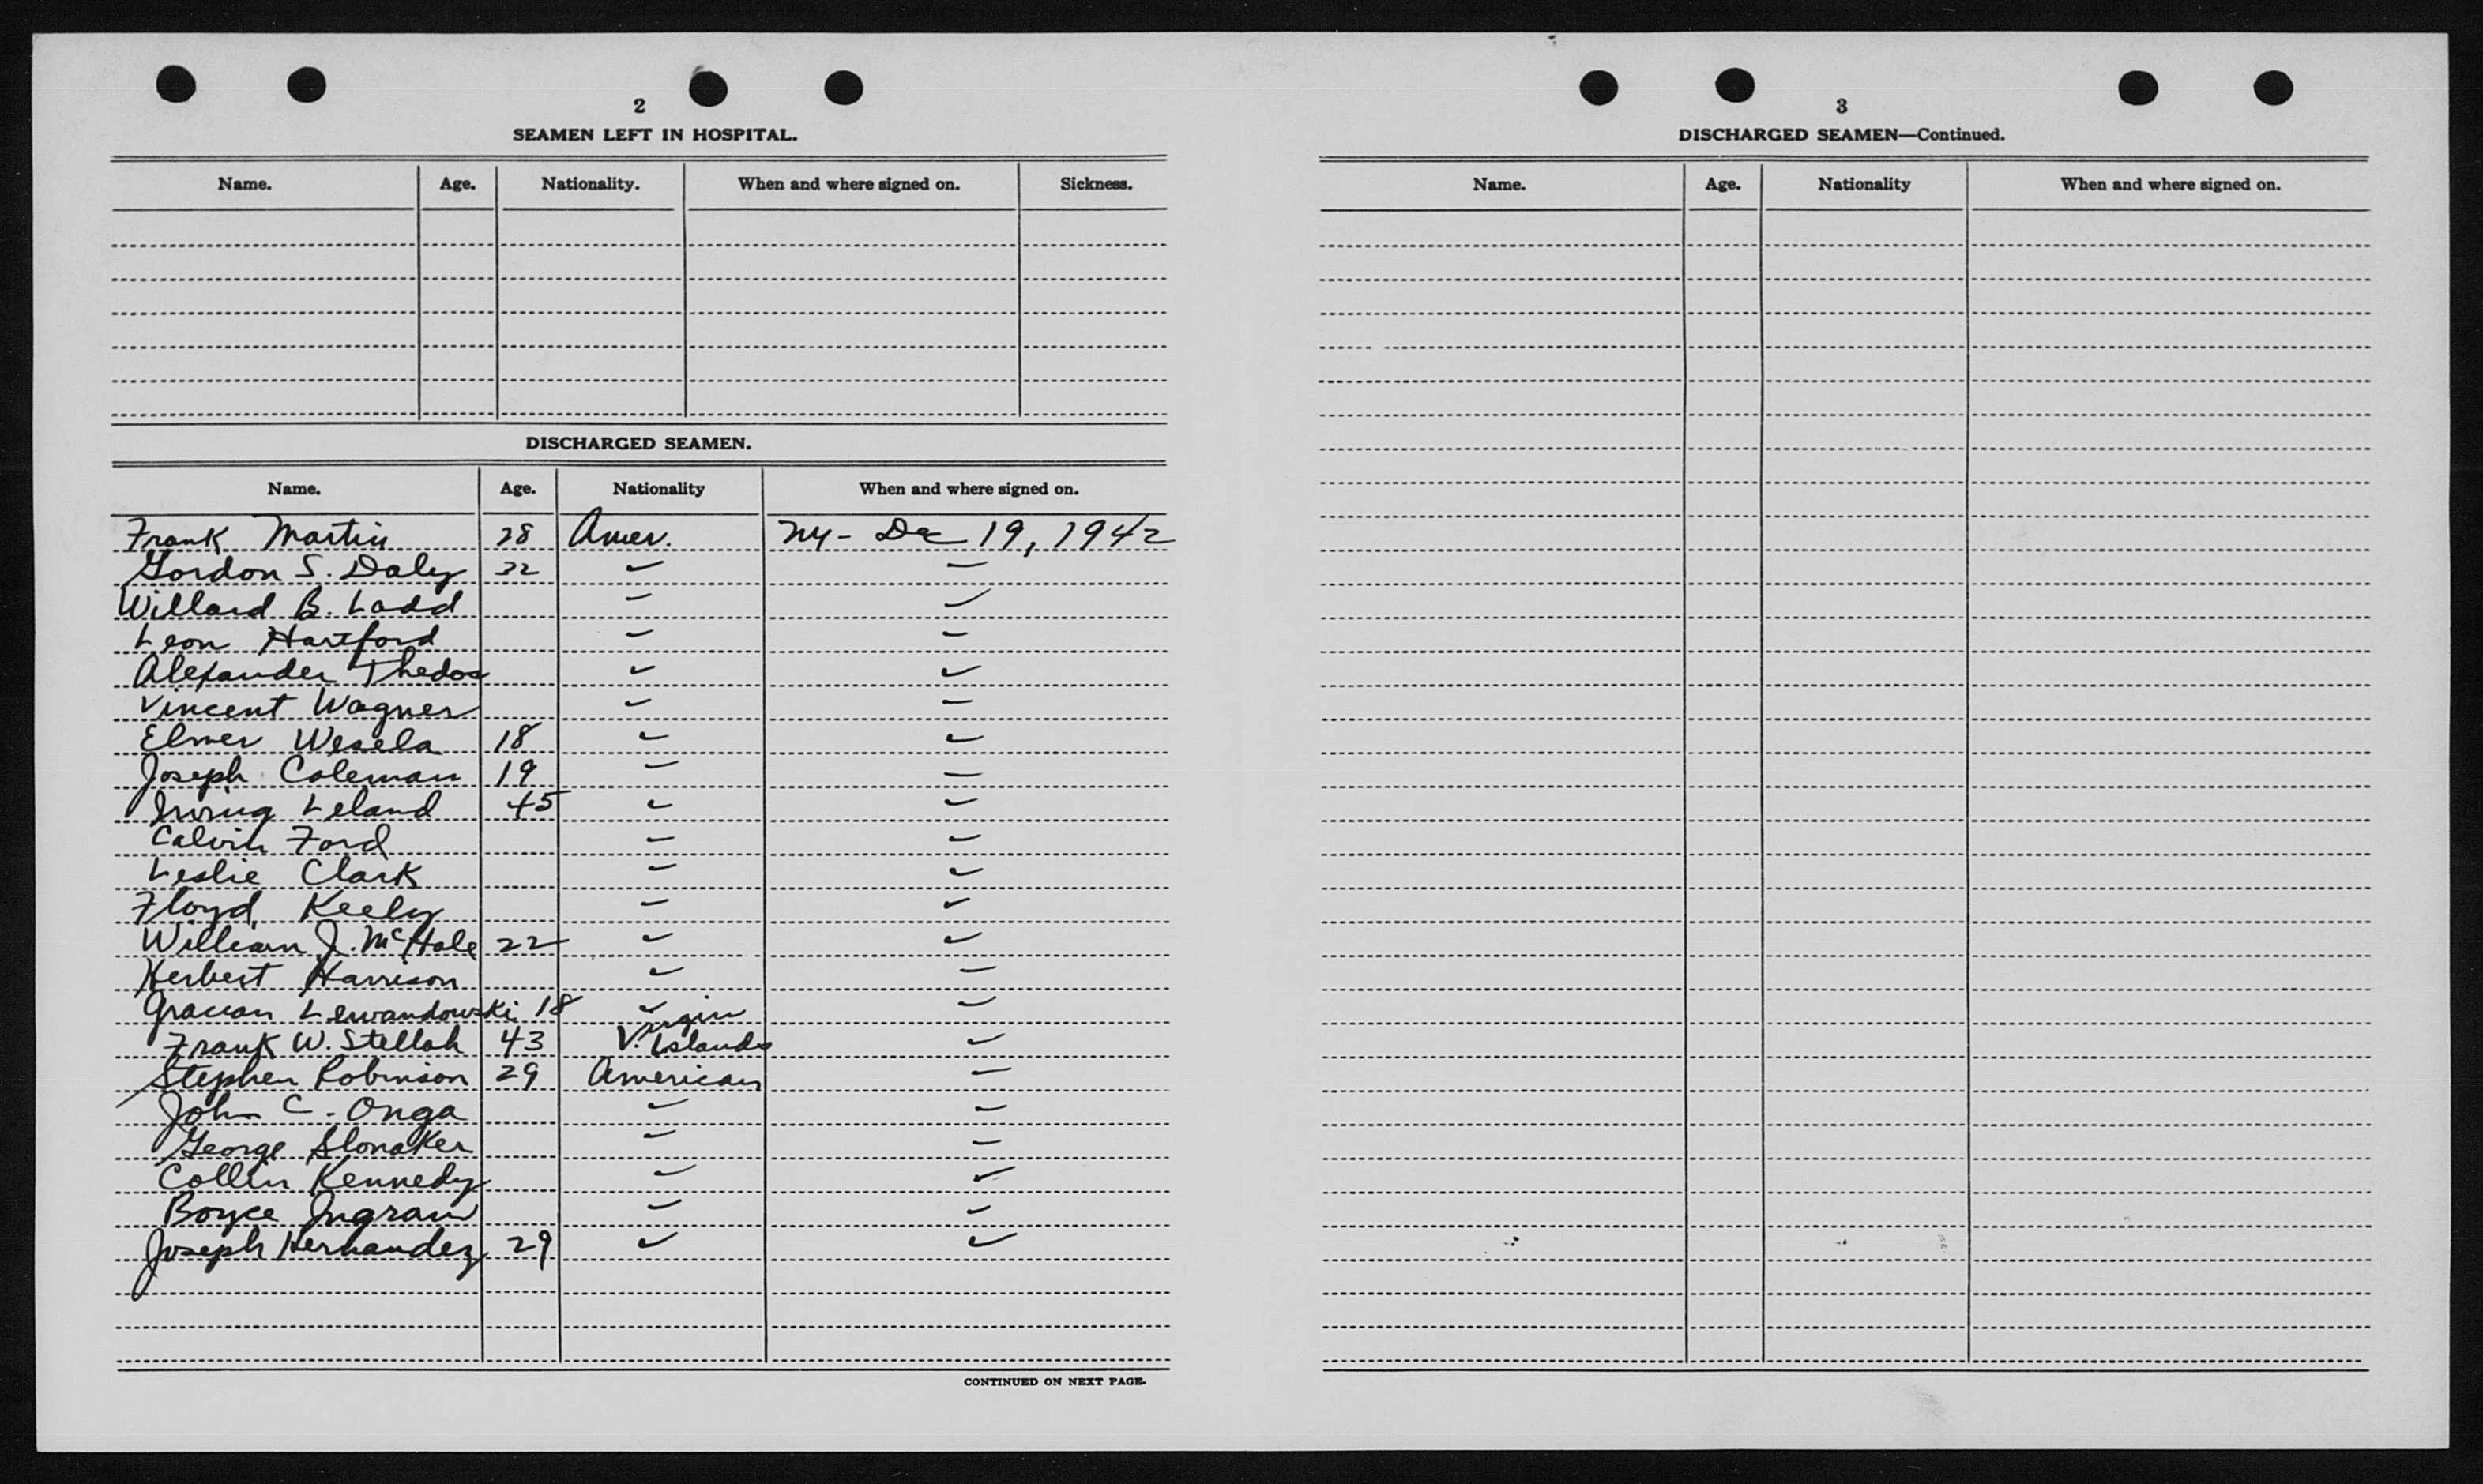 2
SEAMEN LEFT IN HOSPITAL.
Name. Age. Nationality. When and where signed on. Sickness.
DISCHARGED SEAMEN.
Name. Age. Nationality When and where signed on.
Frank Martin 28 Amer. NY - Dec 19, 1942
Gordon S. Daly 32
Willard B. Ladd
Leon Hartford
Alexander Thedos
Vincent Wagner
Elmer Wesela 18
Joseph Coleman 19
Irving Leland 45
Calvin Ford
Leslie Clark
Floyd Keely
William J. McHale 22
Herbert Harrison
Gracian Lewandowski 18
Frank W. Stellah 43 V. Virgin Islands
Stephen Robinson 29 American
John C. Onga
George Slonaker
Collin Kennedy
Boyce Ingram
Joseph Hernandez 29
CONTINUED ON NEXT PAGE.
3
DISCHARGED SEAMEN—Continued.
Name. Age. Nationality When and where signed on.